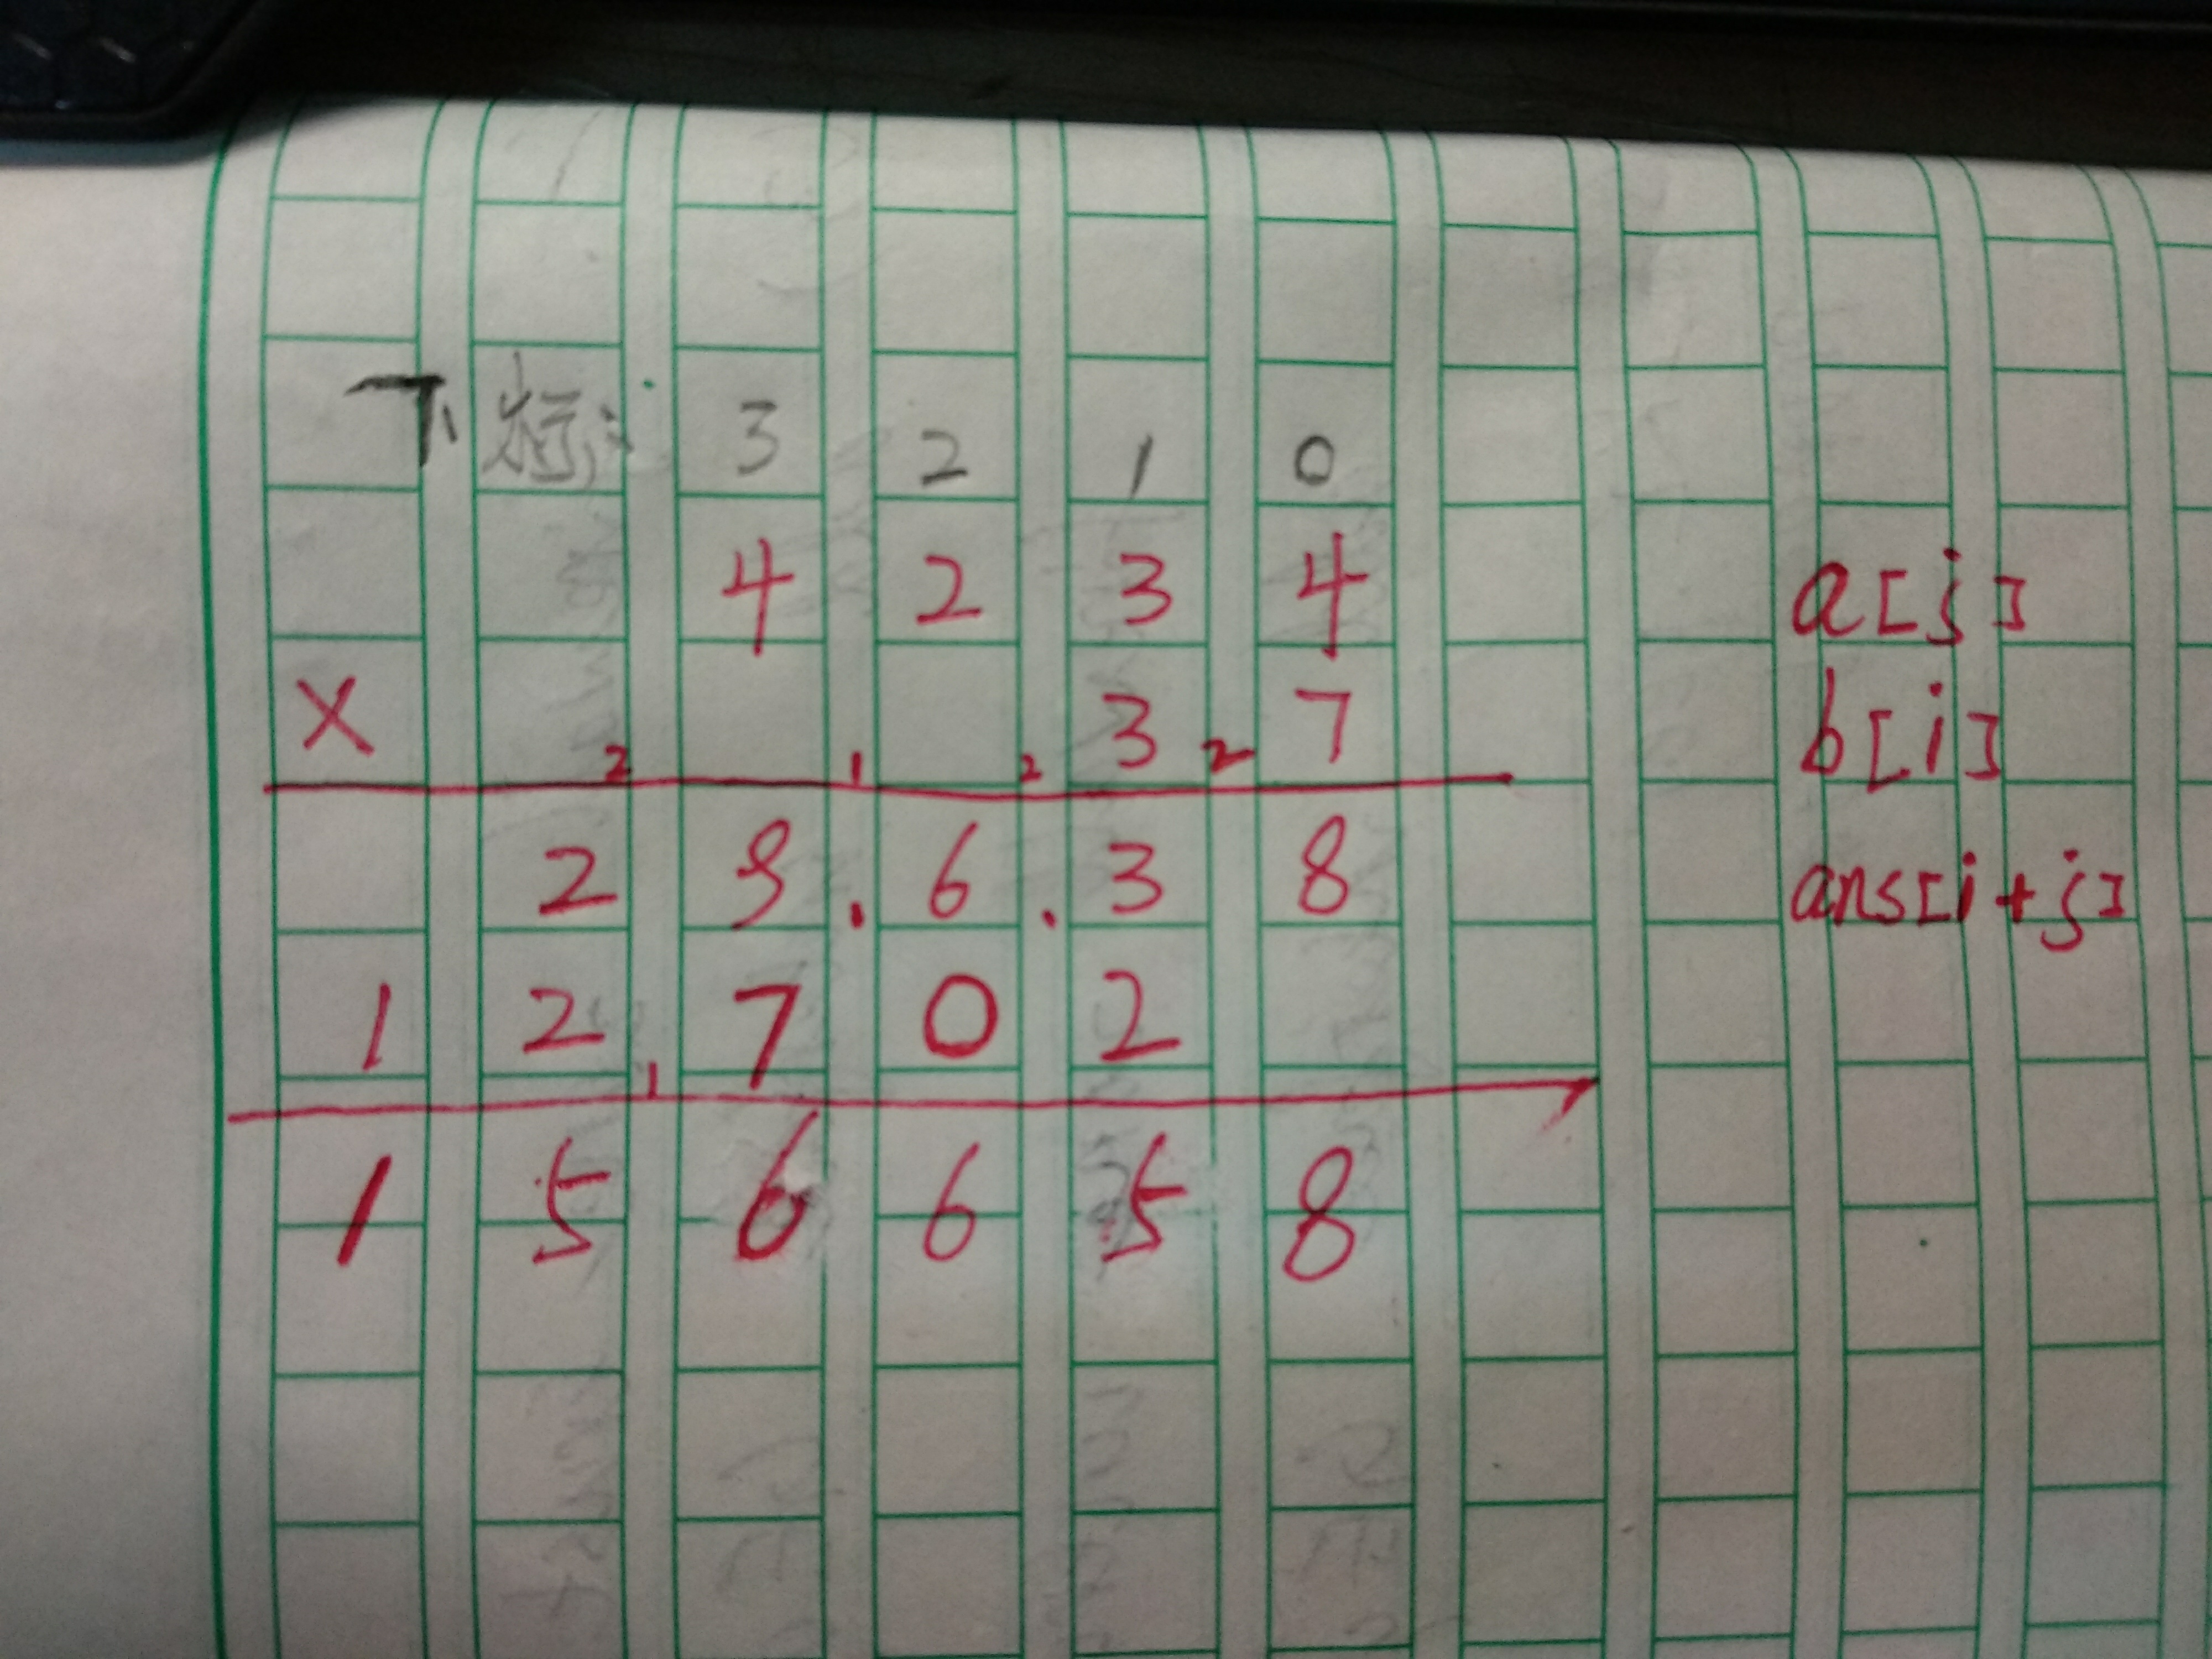 下标: 3 2 1 0
4 2 3 4 a[j]
× 3 7 b[i]
2 1 2 2
2 9 . 6 . 3 8 ans[i+j]
1 2 7 0 2
1
1 5 6 6 5 8